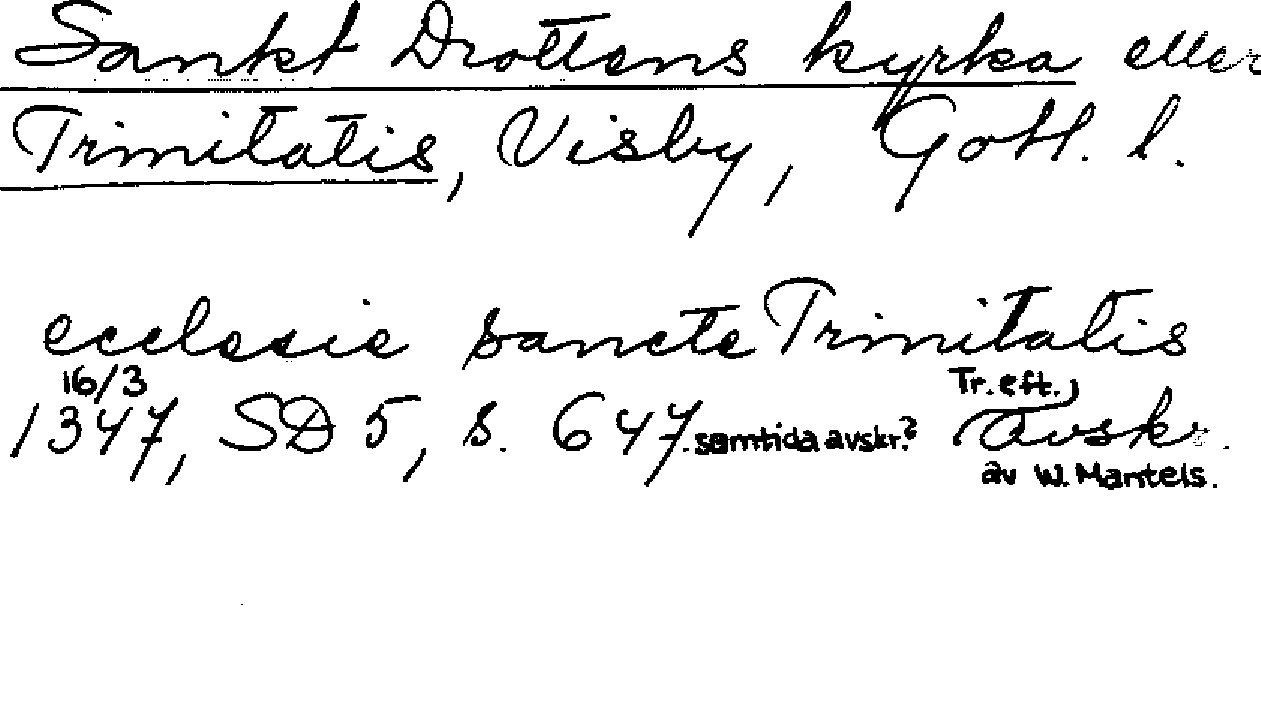 Sankt Drottens kyrka eller
Trinitatis, Visby, Gotl. l.
ecclesie sancte Trinitatis
16/3
Tr. eft.
1347, SD 5, s. 647. samtida avskr.? avskr.
av W. Mantels.